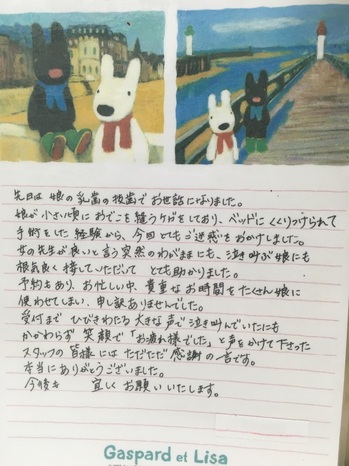 先日は 娘の 乳歯の抜歯で お世話になりました。
娘が 小さい頃に おでこを縫うケガをしており、ベッドに くくりつけられて
手術をした 経験から、今回 とても ご迷惑を おかけしました。
女の先生が良いと言う 突然の わがままにも、泣き叫ぶ 娘にも
根気良く 接していただいて とても 助かりました。
予約もあり、お忙しい中、貴重な お時間を たくさん 娘に
使わせてしまい、申し訳 ありませんでした。
受付まで ひびきわたる 大きな 声で 泣き叫んでいたにも
かかわらず 笑顔で「お疲れ様でした」と 声をかけて 下さった
スタッフの 皆様には ただただ 感謝の 言です。
本当に ありがとうございました。
今後も 宜しく お願い いたします。
Gaspard et Lisa